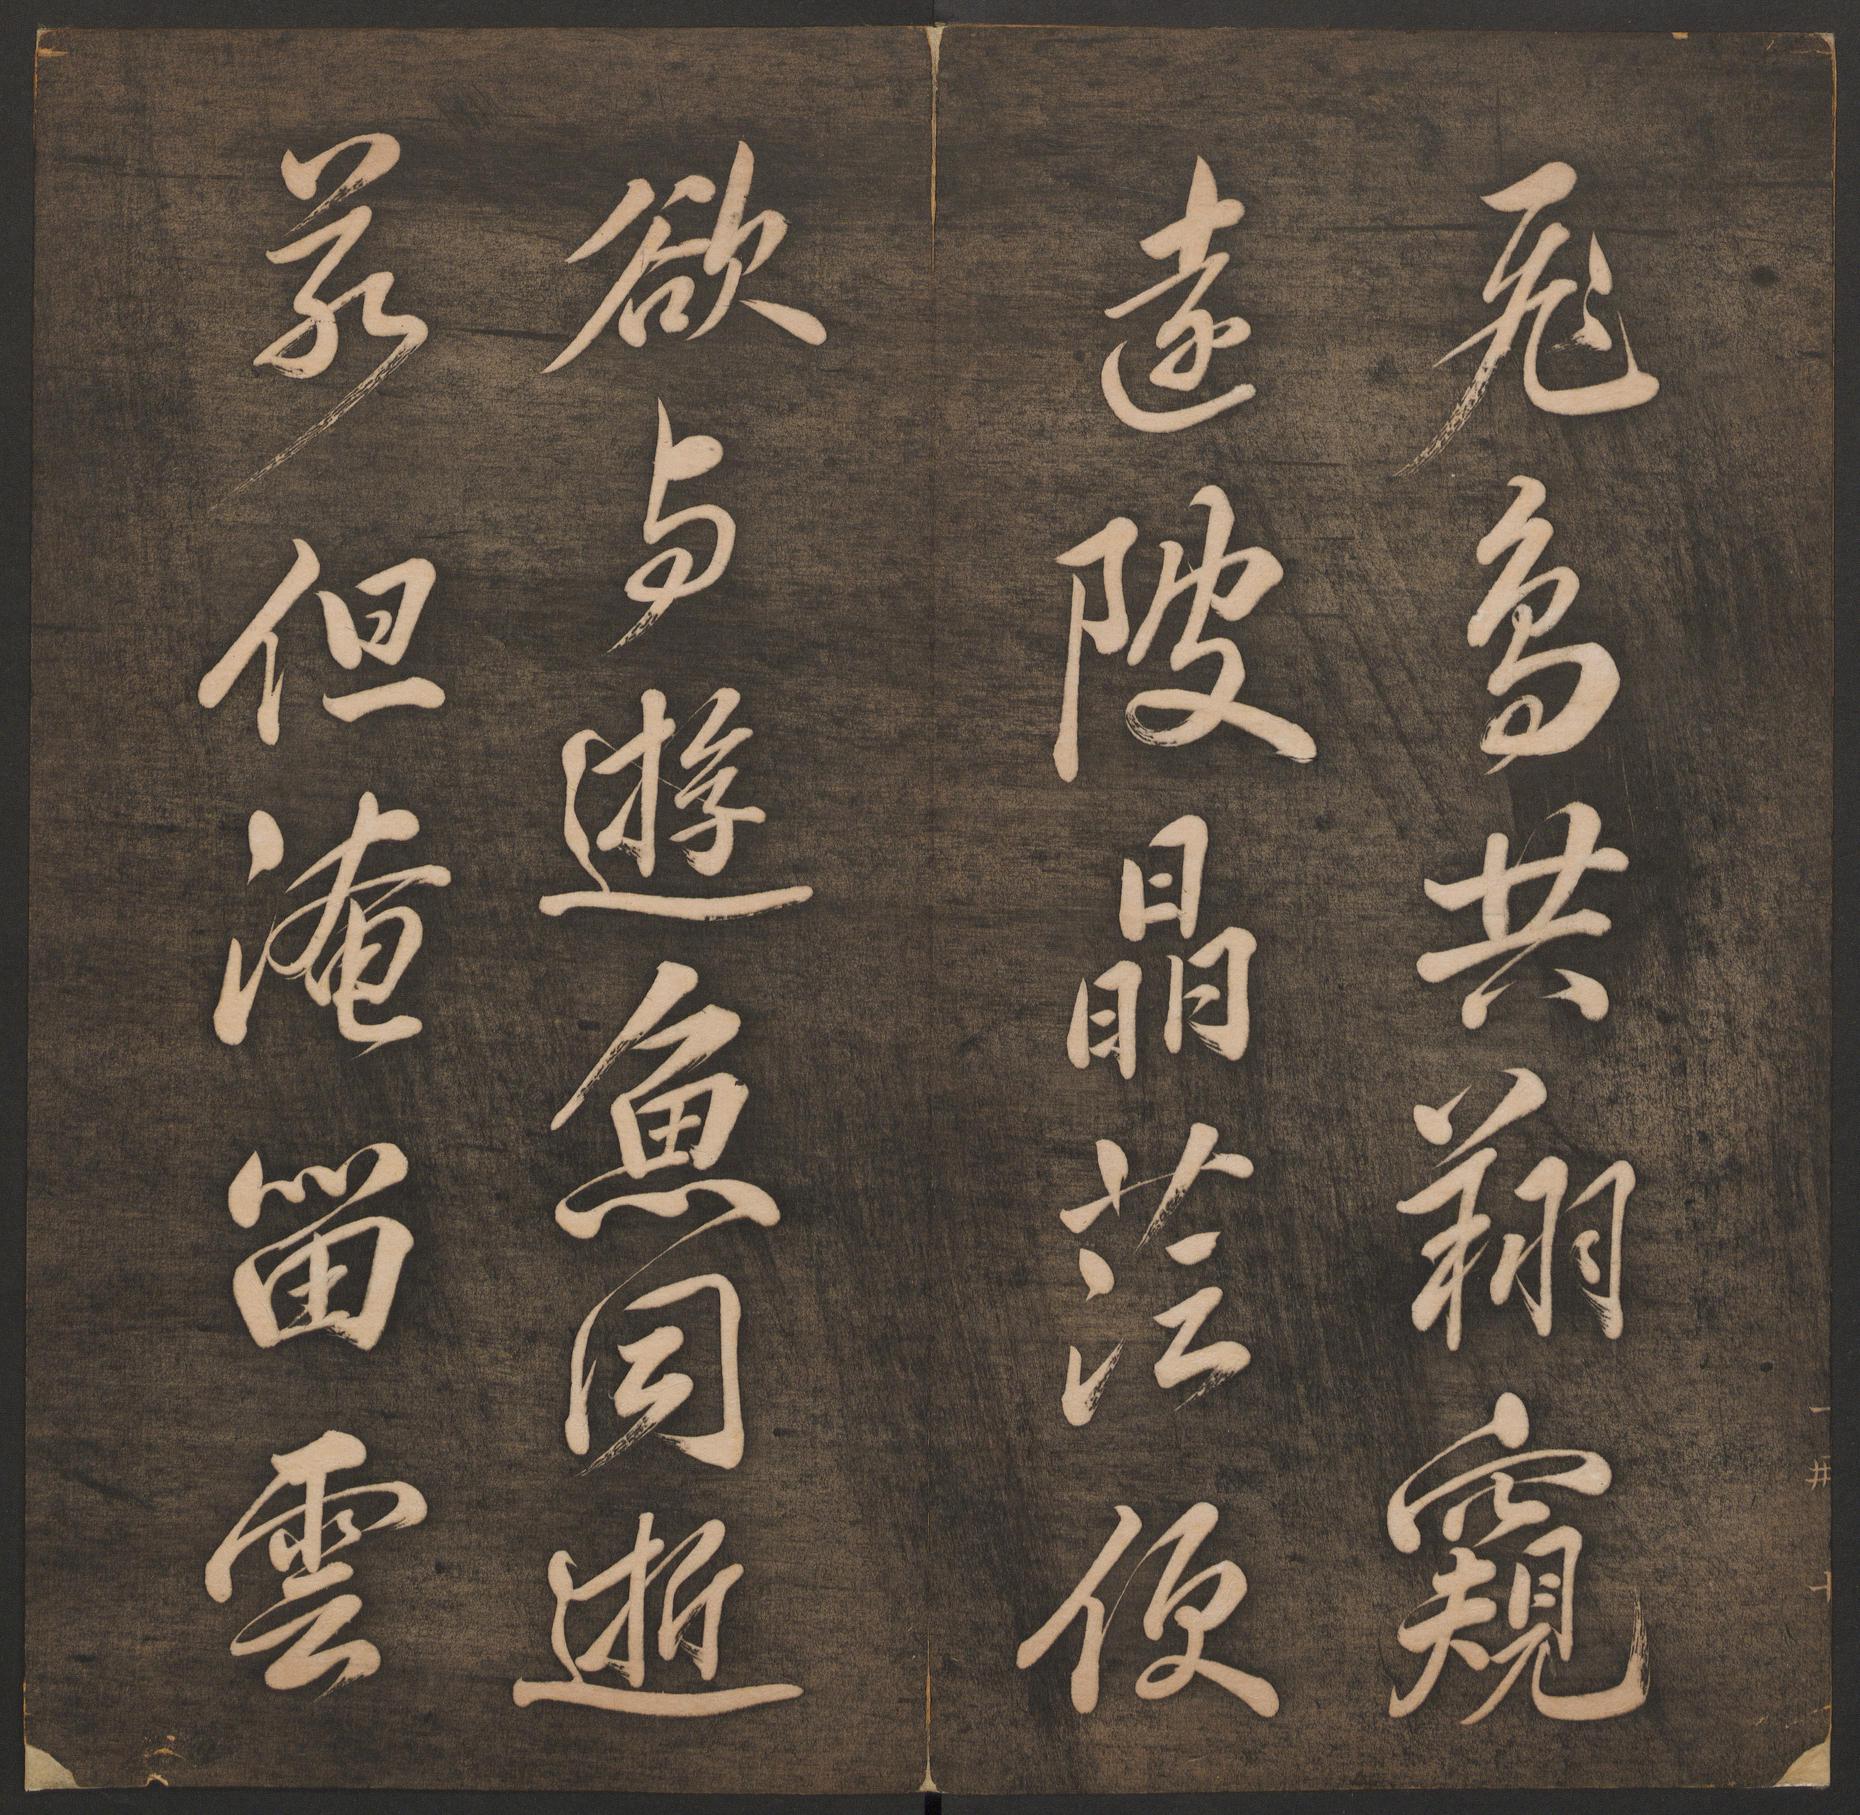 飛鳥共翔窺
遠陂晶茫便
欲与遊魚同逝
若但淹留雲